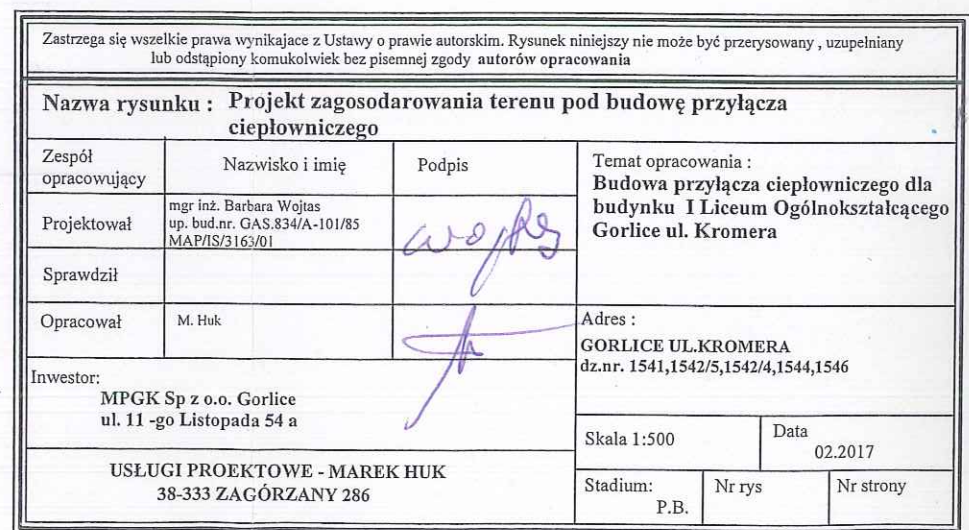 Zastrzega się wszelkie prawa wynikajace z Ustawy o prawie autorskim. Rysunek niniejszy nie może być przerysowany , uzupełniany
lub odstąpiony komukolwiek bez pisemnej zgody autorów opracowania
Nazwa rysunku : Projekt zagosodarowania terenu pod budowę przyłącza
ciepłowniczego
Zespół
opracowujący
Nazwisko i imię
Podpis
Projektował
mgr inż. Barbara Wojtas
up. bud.nr. GAS.834/A-101/85
MAP/IS/3163/01
Wojtas
Sprawdził
Opracował
M. Huk
Temat opracowania :
Budowa przyłącza ciepłowniczego dla
budynku I Liceum Ogólnokształcącego
Gorlice ul. Kromera
Adres :
GORLICE UL.KROMERA
dz.nr. 1541,1542/5,1542/4,1544,1546
Inwestor:
MPGK Sp z o.o. Gorlice
ul. 11 -go Listopada 54 a
Skala 1:500
Data
02.2017
USŁUGI PROEKTOWE - MAREK HUK
38-333 ZAGÓRZANY 286
Stadium:
P.B.
Nr rys
Nr strony